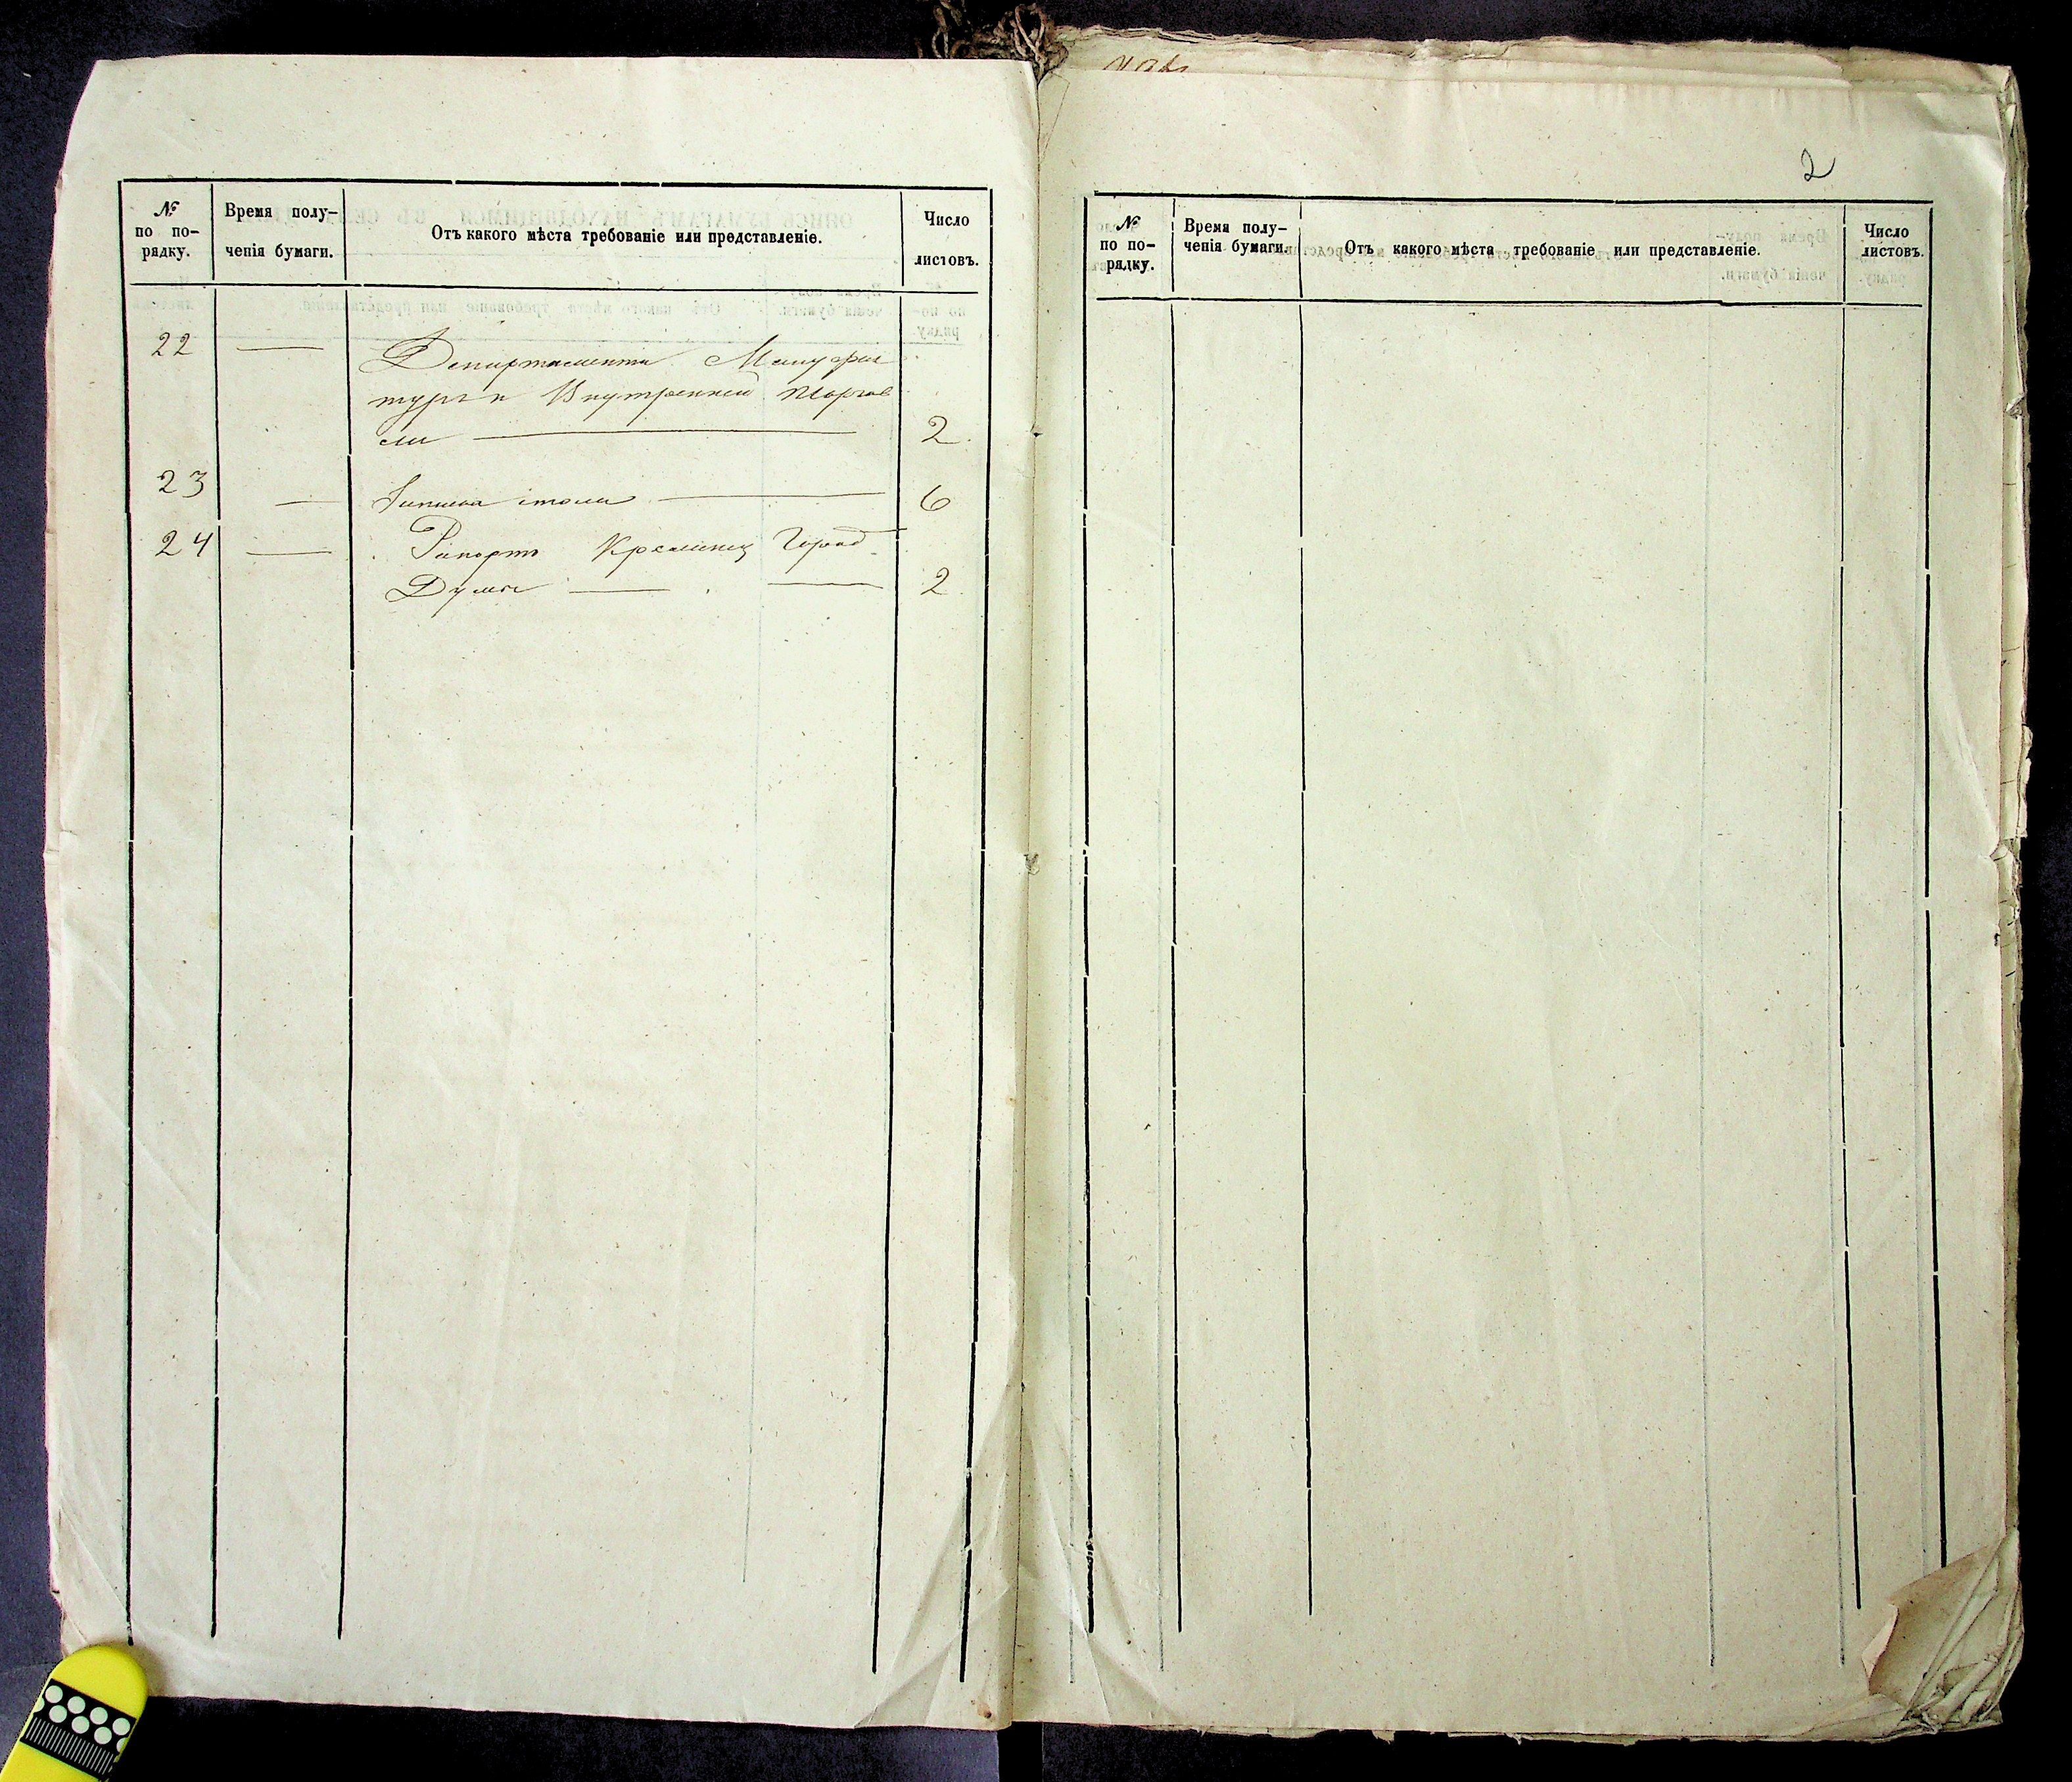 №
по по-
рядку.
Время полу-
ченія бумаги.
Отъ какого мѣста требованіе или представленіе.
Число
листовъ.
22 — Департамента Мануфак
туръ и Внутренней Торгов
ли — 2
23 — стола — 6
24 — Рапортъ Кременец Город
Думы — 2
2
№
по по-
рядку.
Время полу-
ченія бумаги.
Отъ какого мѣста требованіе или представленіе.
Число
листовъ.